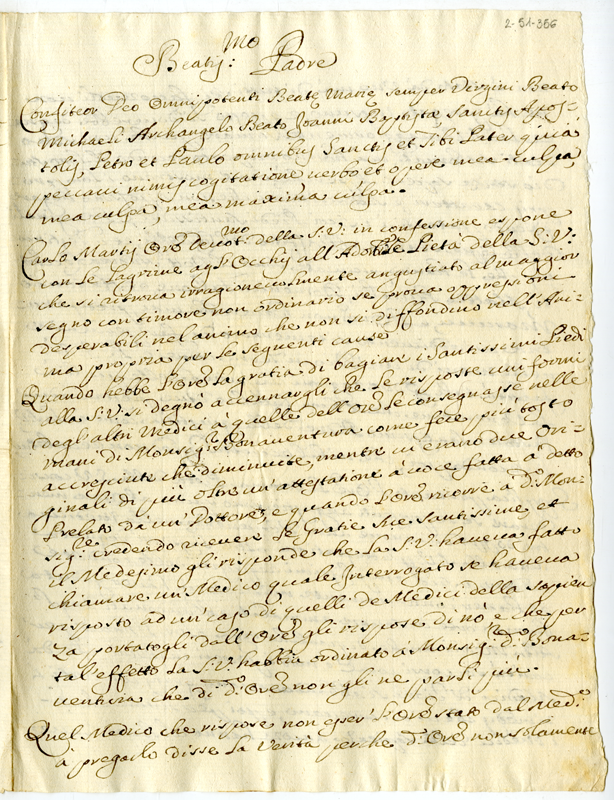 2-51-356
Beatiss:mo Padre
Confiteor Deo Omnipotenti Beatę Marię semper Virgini Beato
Michaeli Archangelo Beato Joanni Baptistę Sanctis Apos-
tolis, Petro et Paulo omnibus Sanctis et Tibi Pater quia
peccavi nimis cogitatione verbo et opere mea culpa,
mea culpa, mea maxima culpa.
Carlo Martij Ore devot:mo della S.V: in confessione espone
con le lagrime agl'Occhij all' Pietà della S:V:
che si ritroua irragioneuolmente angustiato al maggior
segno con timore non ordinario se proua oppressioni
desperabili nel animo che non si diffondino nell'Ani-
ma propria per le seguenti cause
Quando hebbe l'Ore la gratia di bagiare i Santissimi Piedi
alla S:V: si degnò accennargli che le risposte uniformi
degl'altri Medici à quelle dell'Ore le consegnasse nelle
mani di Monsig:re Bonaventura come fece più tosto
accresciute che diminuite, mentre vi erano due Ori-
ginali di più oltre un'attestatione à voce fatta à detto
Prelato da un'Dottore, e quando l'Ore ricorre à d:o Mon-
sig:re credendo ricevere le Gratie Sue Santissime et
il Medesimo gli risponde che la S:V: haueua fatto
chiamare un'Medico quale Interrogato se haueua
risposto ad un'caso di quelli de Medici della Sapien
za portatogli dall'Ore gli rispose di nò e che per
tal'effetto la S:V: habbia ordinato à Monsig:re d:o Bona-
uentura che di d:o Ore non gli ne parli più.
Quel Medico che rispose non esser l'Ore stato dal Med:o
à pregarlo disse la Verità perche d:o Ore non solamente